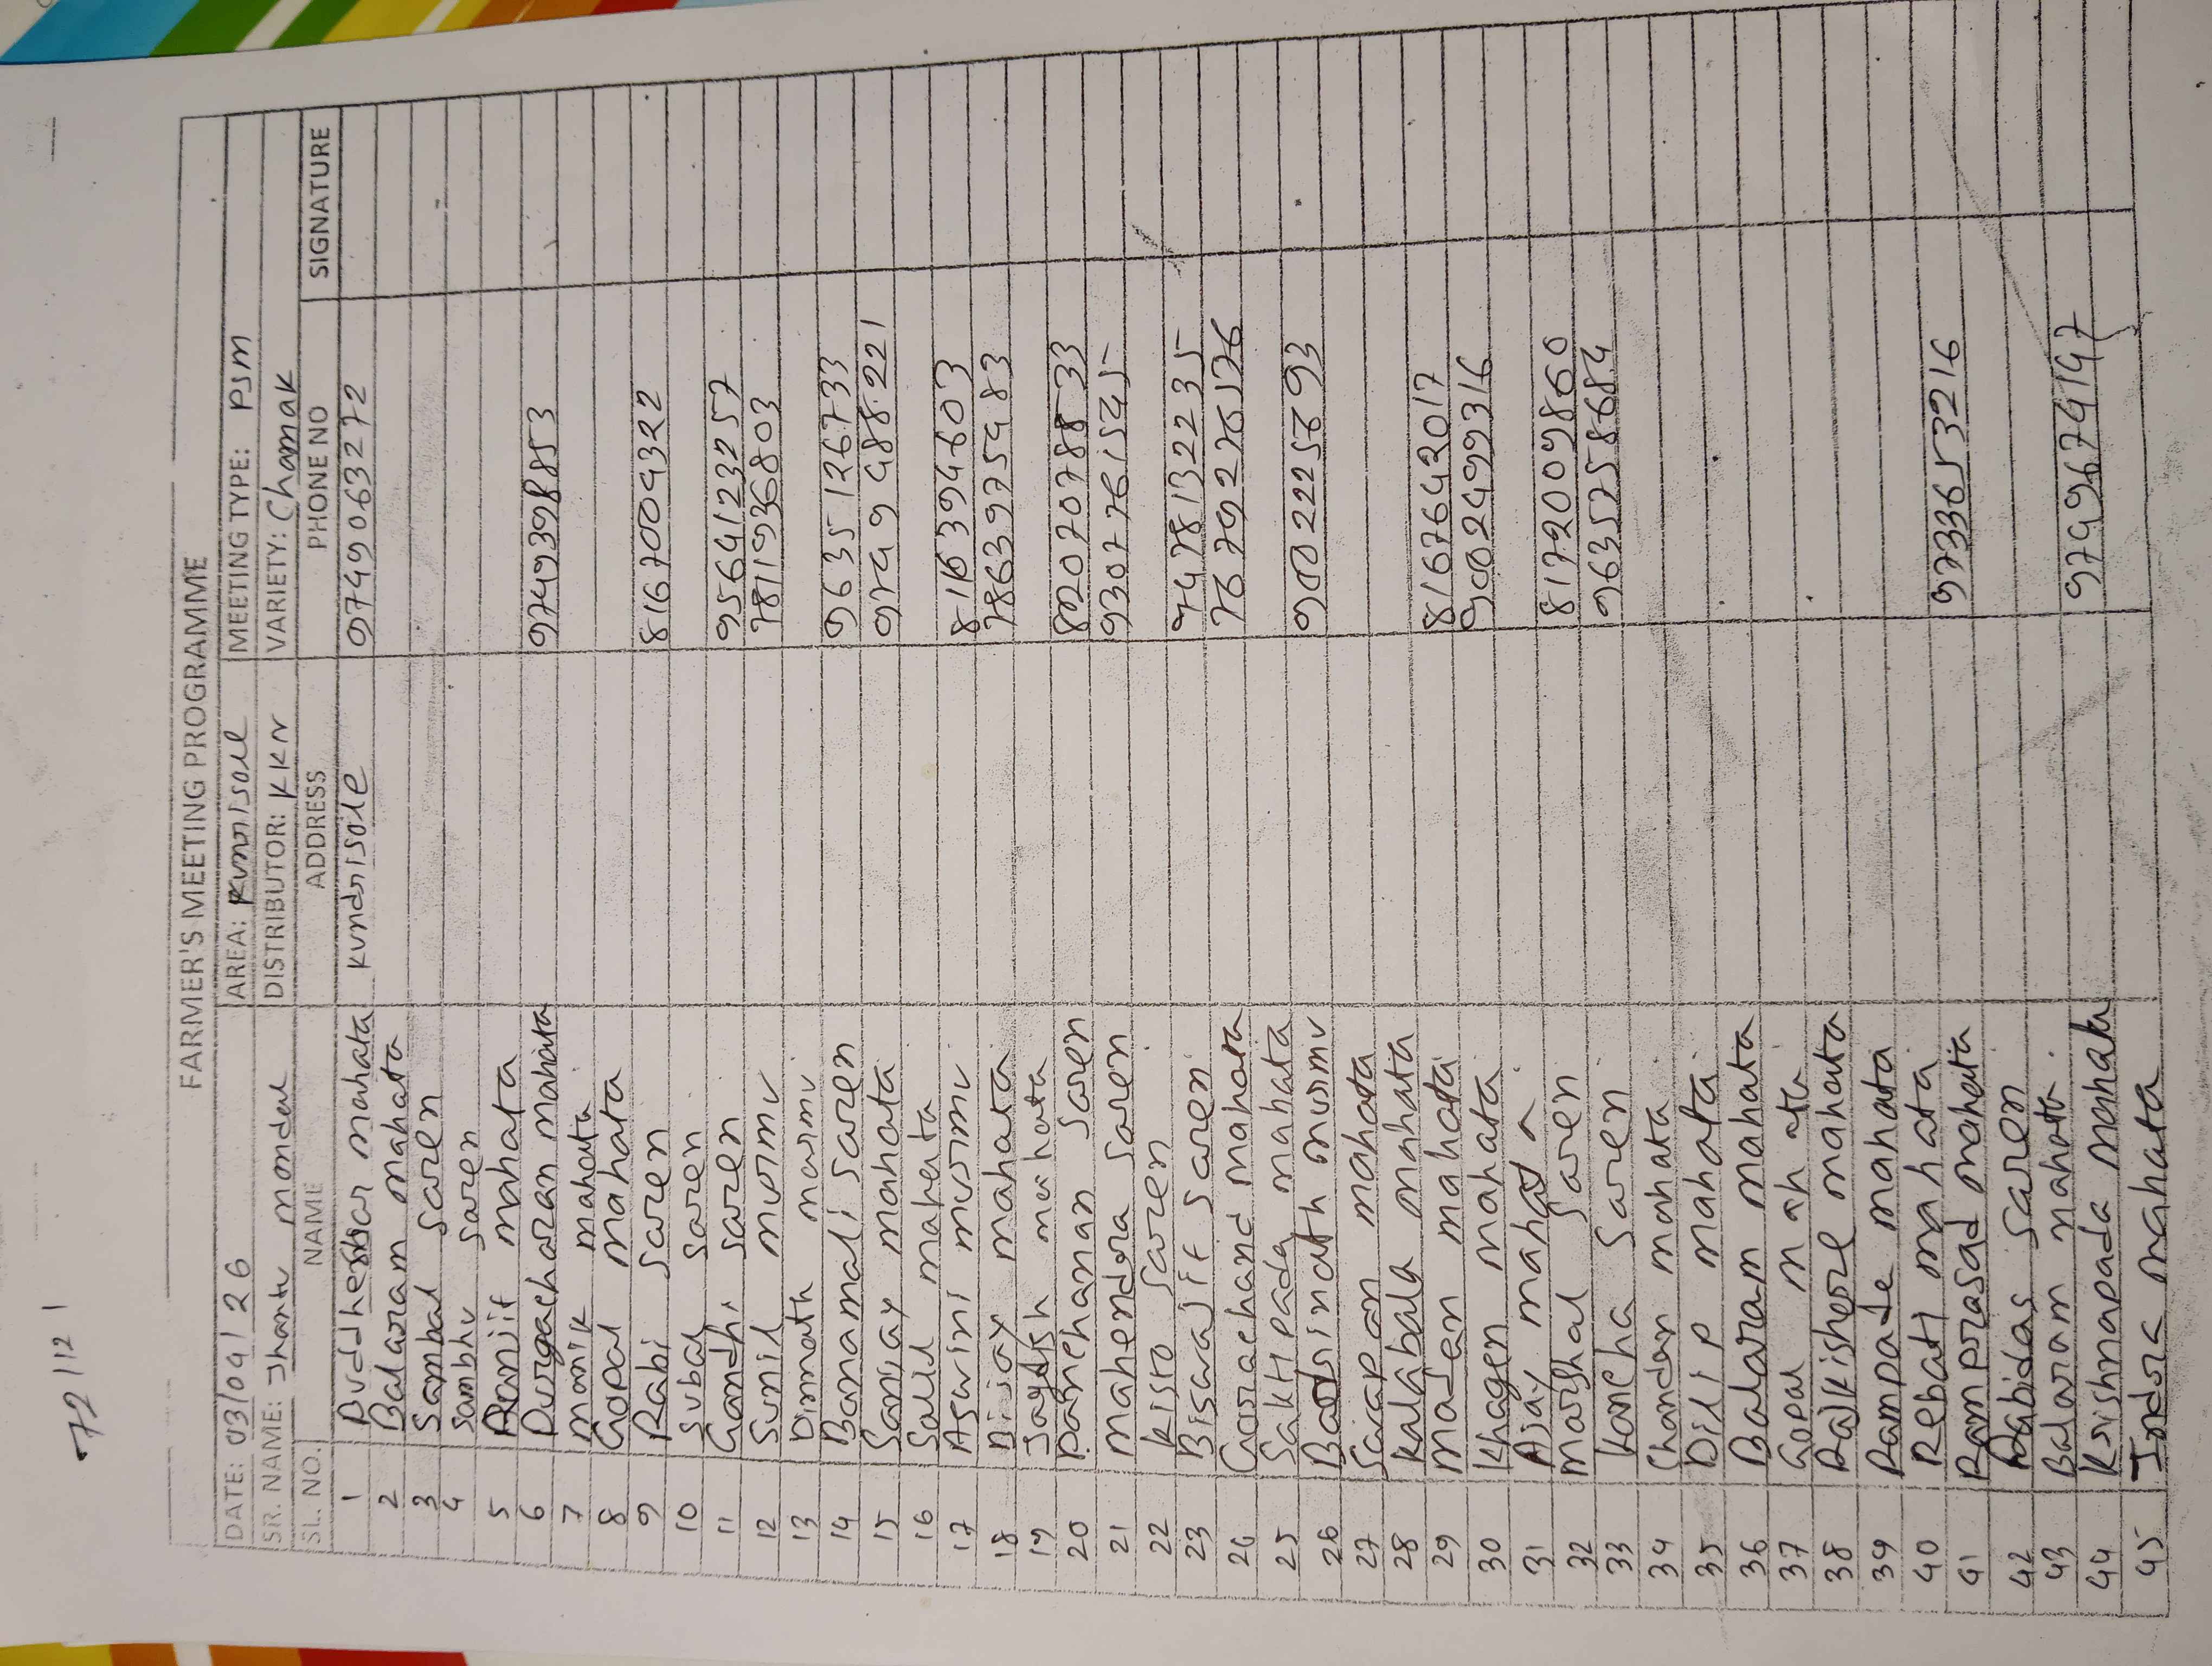 72112 1
FARMER'S MEETING PROGRAMME
DATE: 03/04/26 AREA: Kunrisole MEETING TYPE: PSM
SR. NAME: Jhantu mondal DISTRIBUTOR: KKN VARIETY: Chamak
SL. NO. NAME ADDRESS PHONE NO SIGNATURE
1 Buddheshor mahata Kundrisole 9749063272
2 Balaram mahata
3 Sambal Saren
4 Sambhu Saren
5 Ranjit mahata
6 Durgacharan mahata 9749398853
7 manik mahata
8 Gopal mahata
9 Rabi Saren 8167004322
10 Subal Saren
11 Gandhi Saren 9564123257
12 Sunil murmu 7811936803
13 Dinnath murmu
14 Banamali Saren 9635126733
15 Sanjay mahata 9749488221
16 Salil mahata
17 Aswini murmu 8116394603
18 Bijoy mahata 7863975483
19 Jagdish mahata
20 Panchanan Saren 8207078833
21 mahendra Saren
22 Kisto Saren
23 Biswajit Saren 9478132235
24 Gorachand mahata
25 Saktipada mahata
26 Badrinath murmu
27 Sarapan mahata
28 Kalabala mahata
29 madan mahata 8167643017
30 Khagen mahata 9002499316
31 Ajay mahata
32 marshal Saren 8172009860
33 Kancha Saren 9635725868
34 Chandan mahata
35 Dilip mahata
36 Balaram mahata
37 Gopal mahata
38 Rajkishore mahata
39 Rampade mahata
40 Rebati mahata
41 Ramprasad mahata 9733653216
42 Rabidas Saren
43 Balaram mahata
44 Krishnapada mahata 9749674147
45 Indra mahata